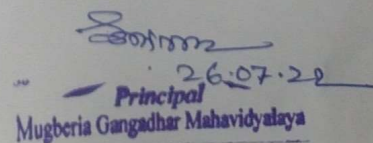 26.07.22
Principal
Mugberia Gangadhar Mahavidyalaya